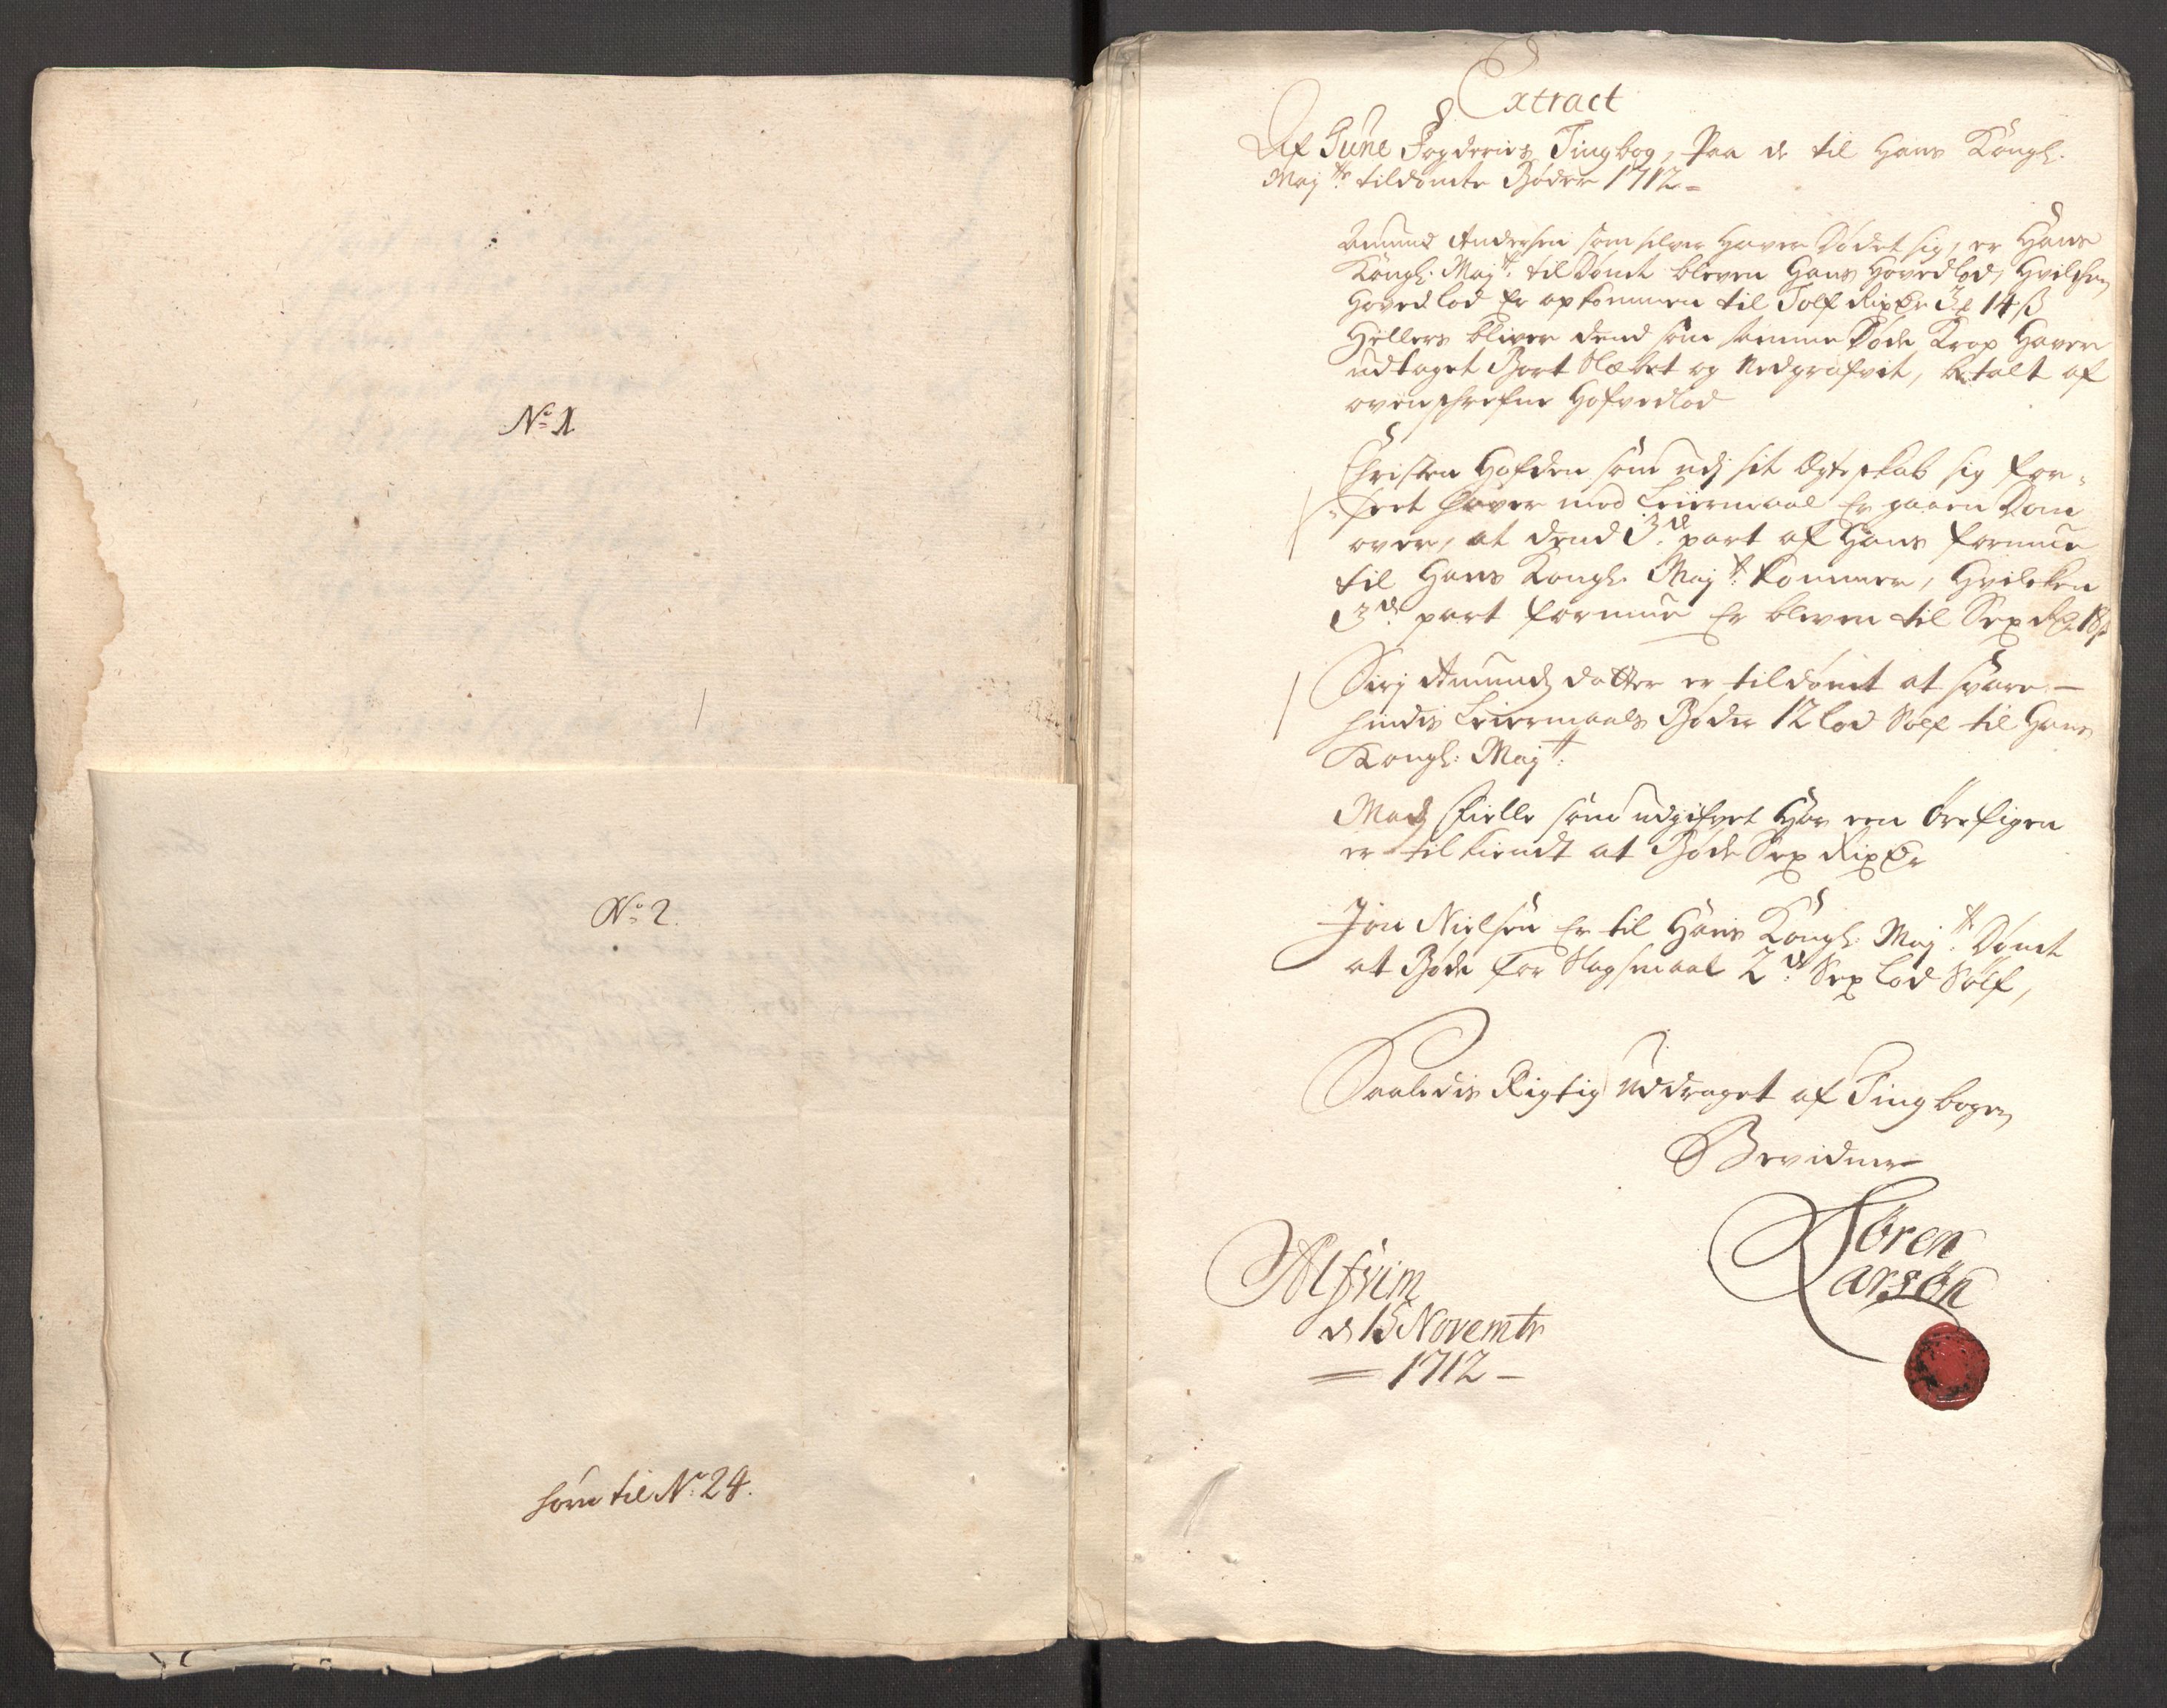 No 1
No 2.
som til No 24.
Extract
Af Fugderies Tingbog, Paa de til Hans Kongl.
Maytz tildömte Böder 1712
Amund Andersen som selver haver Dödet sig, er Hans
Kongl: Mayt: til Dömt bleven Hans Hovedlod, Hvilchen
Hovedlod Er opkommen til Tolf Rixdr 3 14 ß
Hellers bliver dend som samme Döde Krop Haver
udtaget Bort Slæbet og Nedgrafvit, betalt af
ovenschrefne Hofvedlod
Christen Hofden som udj sit Ægteskab sig for-
-seet haver med Leiermaal Er gaaen Dom
over, at dend 3de part af Hans formue
til Hans Kongl. Mayt: kommer, Hvileken
3de part formue Er bleven til Sex
Sirj Amunds datter er tildömt at svare
hendis Leiermaals Böder 12 lod Sölf til Hans
Kongl: Mayt:
Mads Fielle som udgifvet Har een Örefigen
er tilkiendt at Böde Sex Rixdr
Jon Nielsen Er til Hans Kongl: Mayt: Dömt
at Böde for Slagsmaal 2de Sex Lod Sölf,
Saaledis Rigtig Uddraget af Tingbogen
Bevidner
Sören
Larsön
Alfhiim
d 15 Novembr
1712